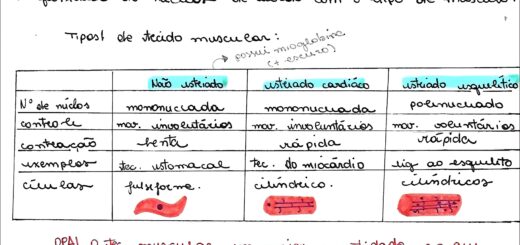 Tipos de tecido muscular:
possui mioglobina
(+ escuro)
Não estriado estriado cardíaco estriado esquelético
Nº de núclos mononucleada mononucleada polinucleado
controle mov. involuntários mov. involuntários mov. voluntários
contração lenta rápida rápida
exemplos tec. estomacal tec. do miocárdio lig ao esqueleto
células fusiforme. cilíndrico. cilíndricos